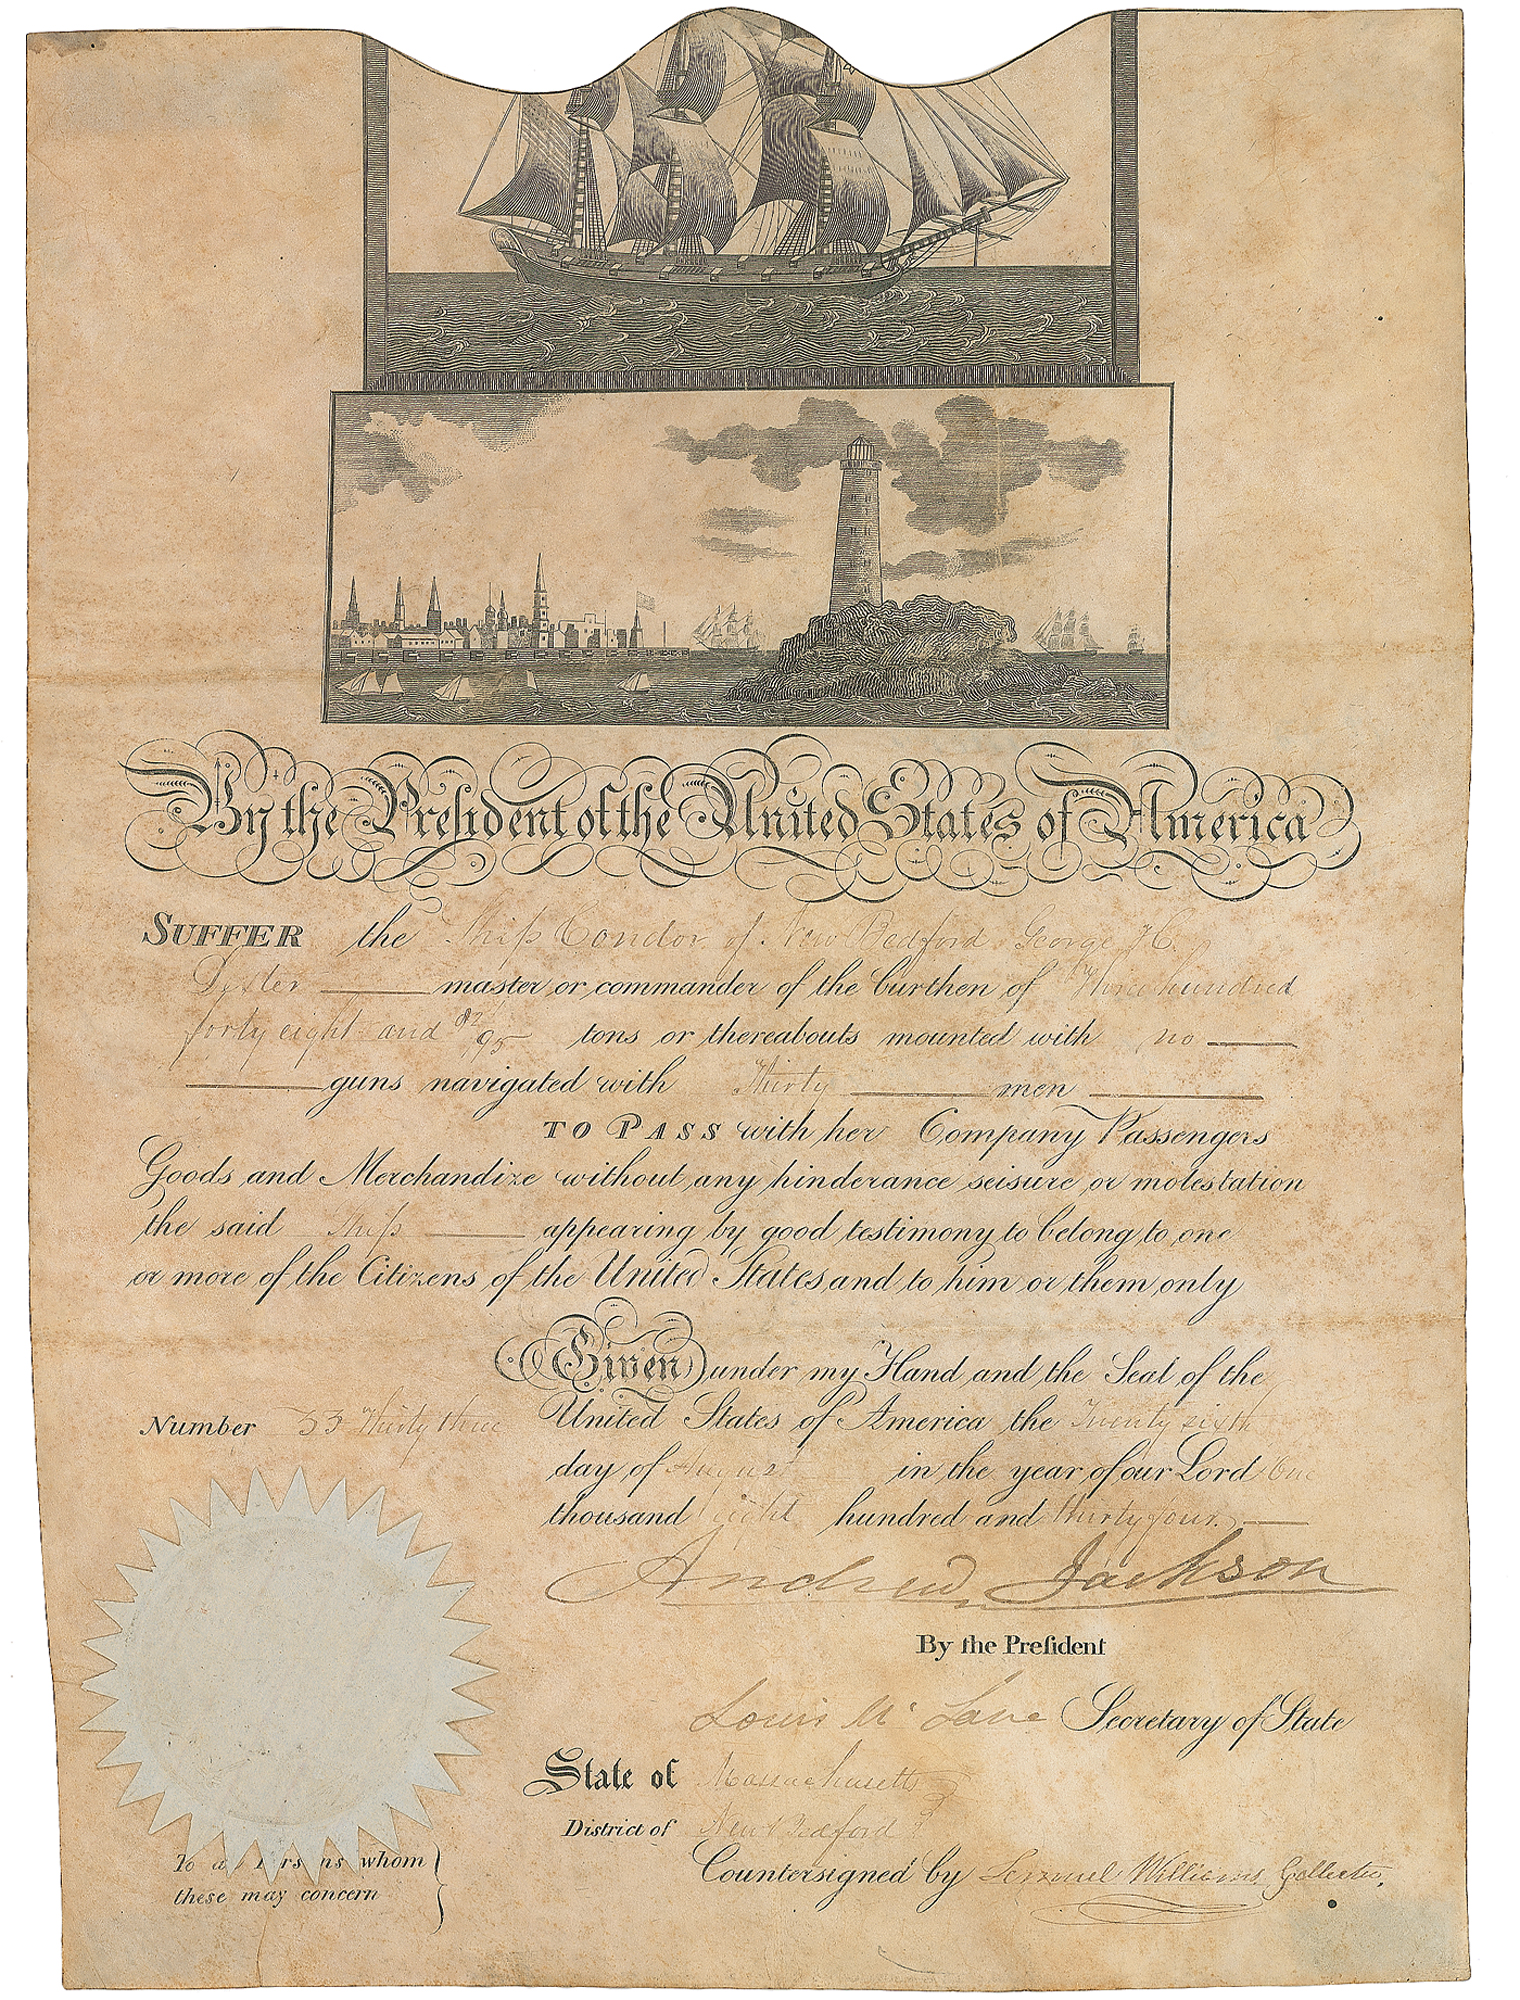 By the President of the United States of America
SUFFER the Ship Condor of New Bedford George H C.
Dexter master or commander of the burthen of Three hundred
forty eight and 92/95 tons or thereabouts mounted with no
guns navigated with Thirty men
TO PASS with her Company Passengers
Goods and Merchandize without any hinderance seisure or molestation
the said Ship appearing by good testimony to belong to one
or more of the Citizens of the United States and to him or them only
Given under my Hand and the Seal of the
Number 33 Thirty three United States of America the Twenty sixth
day of August in the year of our Lord One
thousand eight hundred and thirty four.
Andrew Jackson
By the President
Louis McLane Secretary of State
State of Massachusetts
District of New Bedford
Countersigned by Lemuel Williams Collector,
To a whom
these may concern